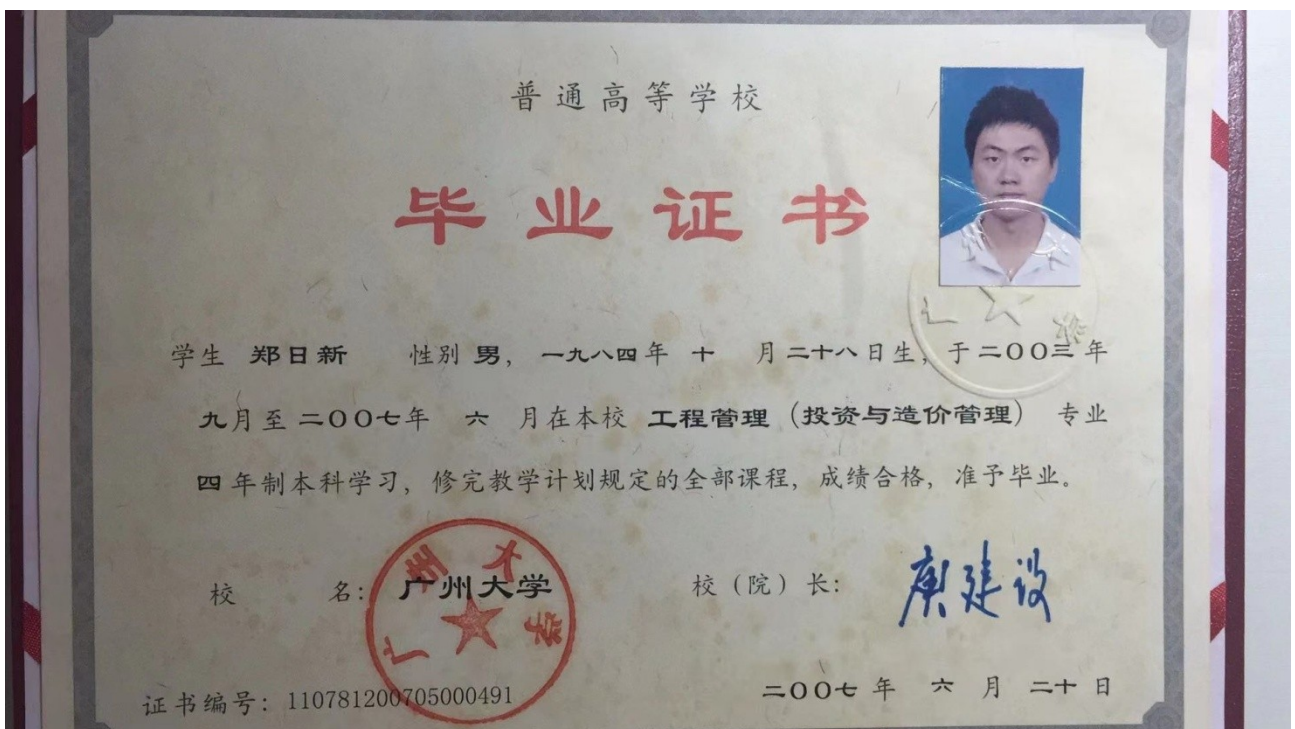 普通高等学校
毕业证书
学生 郑日新 性别 男，一九八四年 十 月二十八日生，于二00三年
九月至二00七年 六 月在本校 工程管理（投资与造价管理） 专业
四年制本科学习，修完教学计划规定的全部课程，成绩合格，准予毕业。
校 名：广州大学 校（院）长：庾建设
广州大学
证书编号：110781200705000491 二00七年 六 月 二十 日